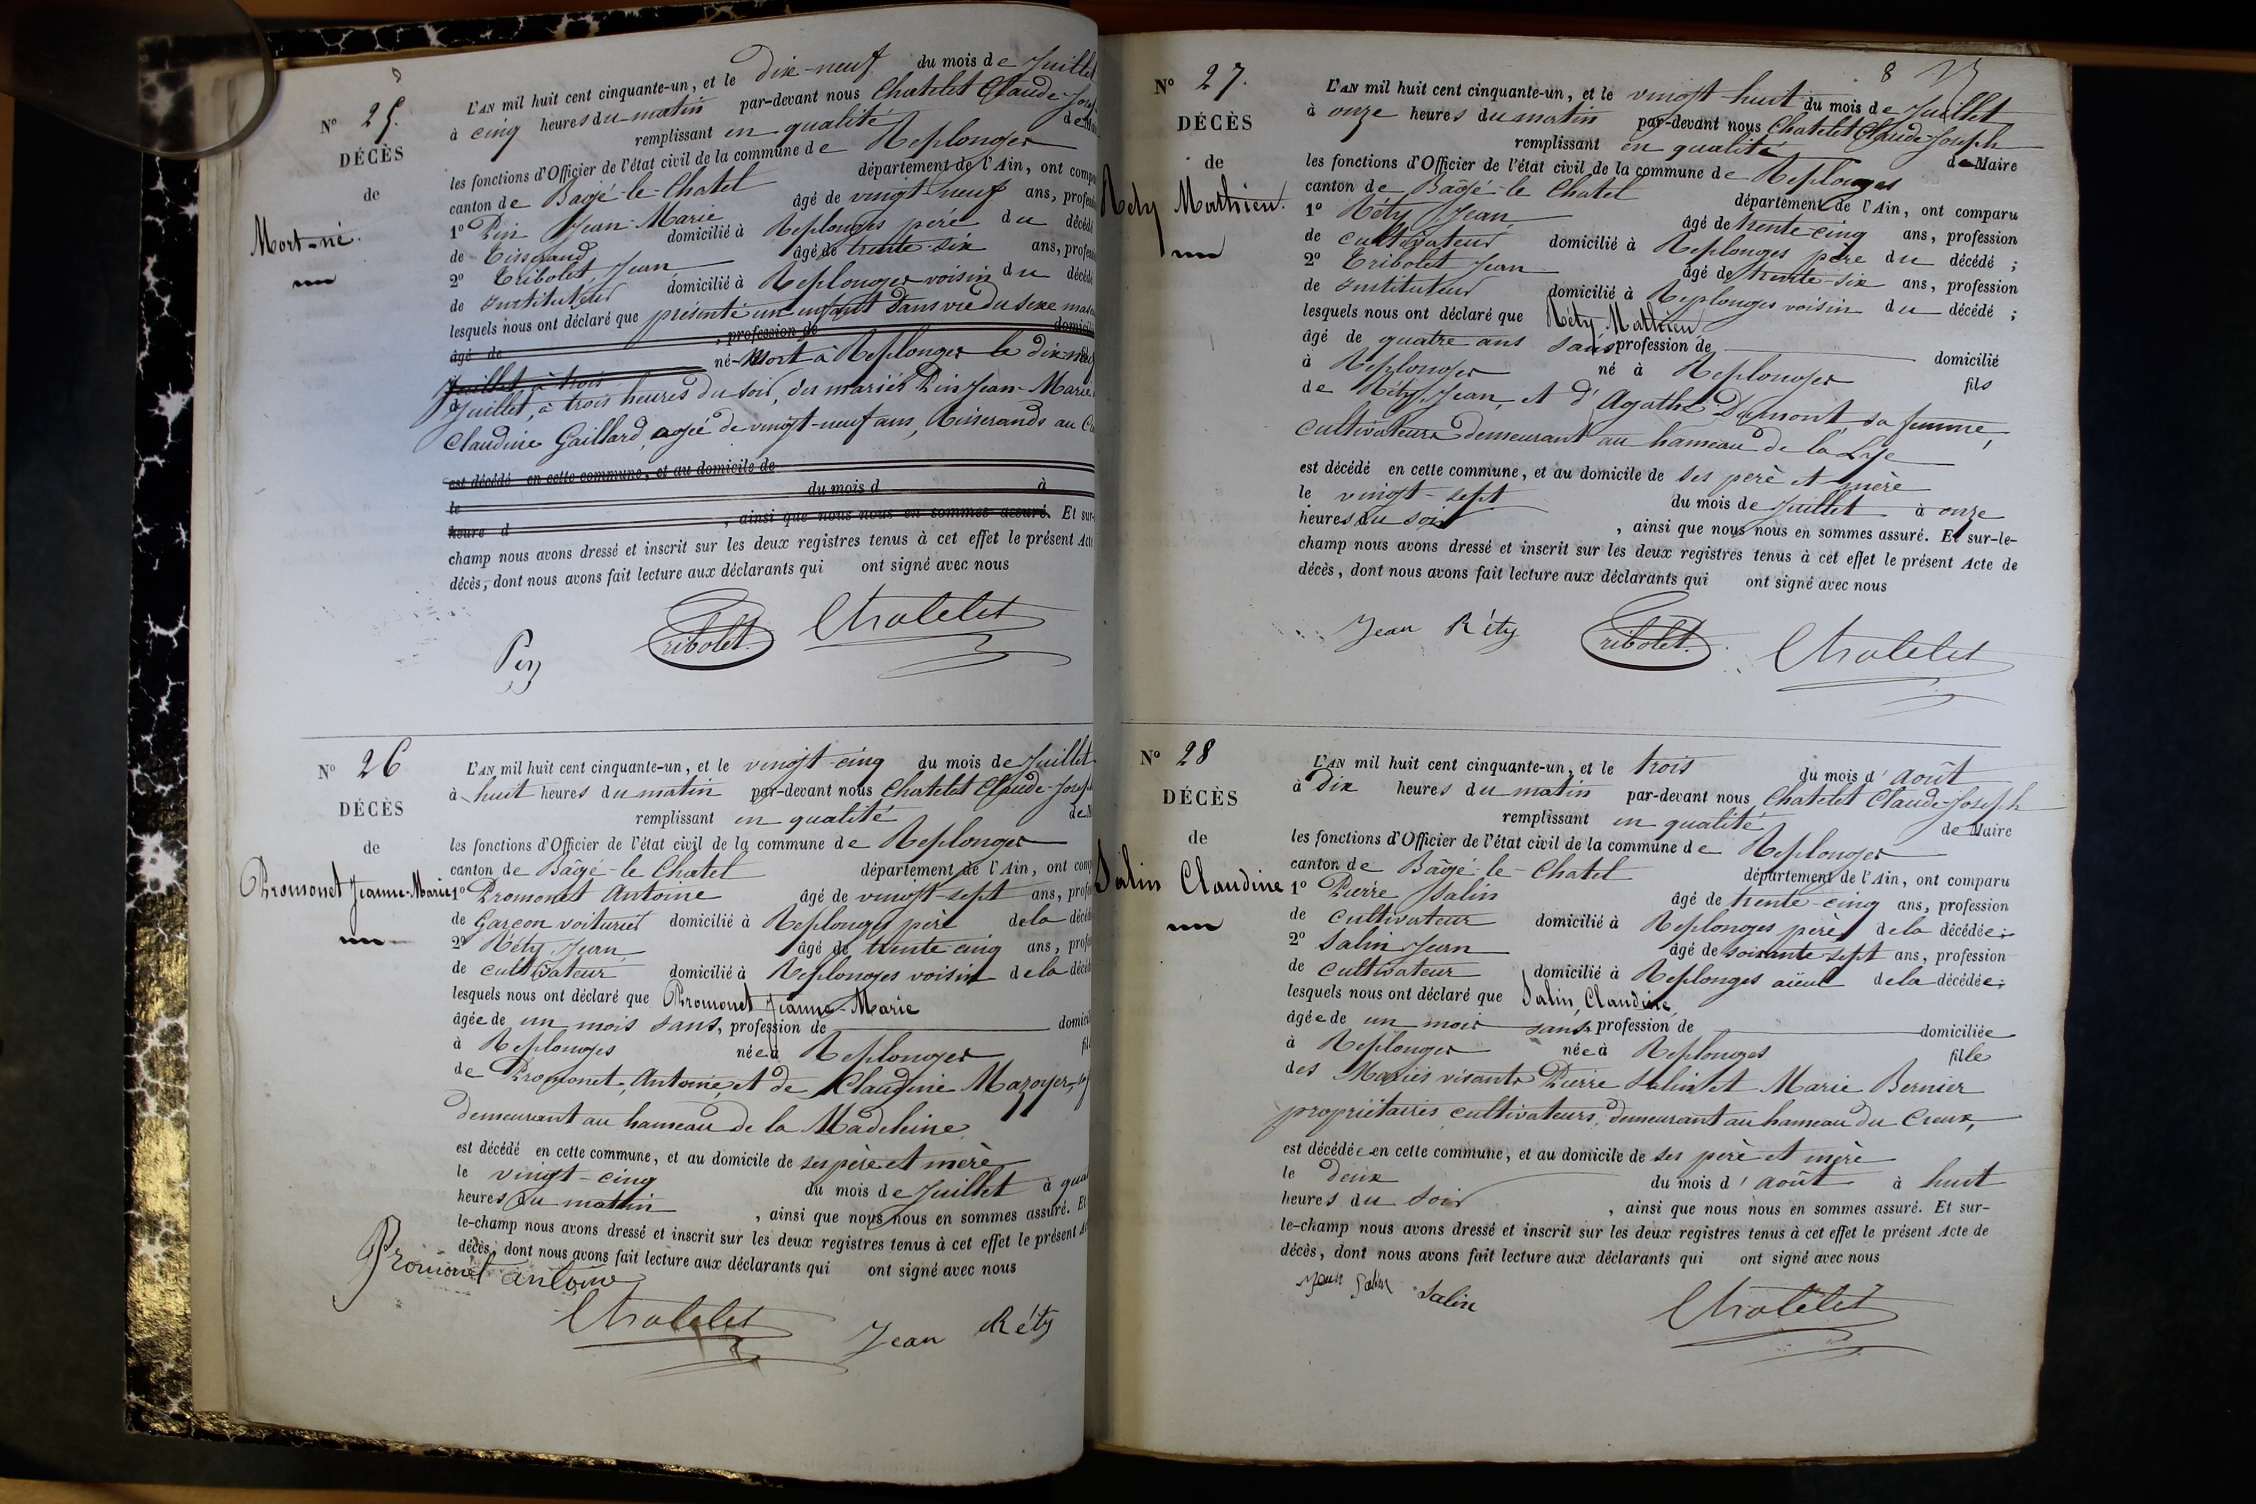 N° 25.
DÉCÈS
de
Mort-né.
L'AN mil huit cent cinquante-un, et le dix-neuf du mois de Juillet
à cinq heures du matin par-devant nous Chatelet Claude-Jose
remplissant en qualité de
les fonctions d'Officier de l'état civil de la commune de Replonges
canton de Bagé-le-Chatel département de l'Ain, ont compa
1° Pin Jean-Marie âgé de vingt neuf ans, profes
de Tisserand domicilié à Replonges père du décédé
2° Tribolet Jean âgé de trente-six ans, profes
de Instituteur domicilié à Replonges voisin du décédé
lesquels nous ont déclaré que présenté un enfant sans vie du sexe mas
âgé de , profession de domicili
né-mort à Replonges le dix neuf
Juillet, à trois
Juillet, à trois heures du soir, des mariés Pin Jean-Marie
Claudine Gaillard, agée de vingt-neuf ans, tisserands au
est décédé en cette commune, et au domicile de
le du mois d à
heure d , ainsi que nous nous en sommes assuré. Et sur-
champ nous avons dressé et inscrit sur les deux registres tenus à cet effet le présent Acte
décès, dont nous avons fait lecture aux déclarants qui ont signé avec nous
Tribolet. Chatelet
N° 26
DÉCÈS
de
Promonet Jeanne-Marie
L'AN mil huit cent cinquante-un, et le vingt-cinq du mois de Juillet
à huit heures du matin par-devant nous Chatelet Claude-Josep
remplissant en qualité de M
les fonctions d'Officier de l'état civil de la commune de Replonges
canton de Bâgé-le-Chatel département de l'Ain, ont comp
1° Promonet Antoine âgé de vingt-sept ans, profes
de Garçon voiturier domicilié à Replonges père de la décéd
2° Réty Jean âgé de trente cinq ans, profes
de cultivateur domicilié à Replonges voisin de la décéd
lesquels nous ont déclaré que Promonet Jeanne-Marie
âgée de un mois sans, profession de domicil
à Replonges née à Replonges fil
de Promonet, Antoine, et de Claudine Mazoyer,
demeurant au hameau de la Madeleine
est décédé en cette commune, et au domicile de ses père et mère
le vingt-cinq du mois de Juillet à qua
heures du matin , ainsi que nous nous en sommes assuré. Et
le-champ nous avons dressé et inscrit sur les deux registres tenus à cet effet le présent Ac
décès, dont nous avons fait lecture aux déclarants qui ont signé avec nous
Promonet antoine
Chatelet Jean Réty
8
N° 27.
DÉCÈS
de
Réty Mathieu.
L'AN mil huit cent cinquante-un, et le vingt-huit du mois de Juillet
à onze heures du matin par-devant nous Chatelet Claude-Joseph
remplissant en qualité de Maire
les fonctions d'Officier de l'état civil de la commune de Replonges
canton de Bâgé-le Chatel département de l'Ain, ont comparu
1° Réty Jean âgé de trente-cinq ans, profession
de cultivateur domicilié à Replonges père du décédé ;
2° Tribolet Jean âgé de trente-six ans, profession
de Instituteur domicilié à Replonges voisin du décédé ;
lesquels nous ont déclaré que Réty Mathieu
âgé de quatre ans sans profession de domicilié
à Replonges né à Replonges fils
de Réty, Jean, et d'Agathe Dumont, sa femme,
cultivateurs demeurant au hameau de la Lye
est décédé en cette commune, et au domicile de ses père et mère
le vingt-sept du mois de Juillet à onze
heures du soir , ainsi que nous nous en sommes assuré. Et sur-le-
champ nous avons dressé et inscrit sur les deux registres tenus à cet effet le présent Acte de
décès, dont nous avons fait lecture aux déclarants qui ont signé avec nous
Jean Réty Tribolet. Chatelet
N° 28
DÉCÈS
de
Salin Claudine
L'AN mil huit cent cinquante-un, et le trois du mois d'août
à dix heures du matin par-devant nous Chatelet Claude-Joseph
remplissant en qualité de Maire
les fonctions d'Officier de l'état civil de la commune de Replonges
canton de Bâgé-le-Chatel département de l'Ain, ont comparu
1° Pierre Salin âgé de trente-cinq ans, profession
de cultivateur domicilié à Replonges père de la décédée;
2° Salin Jean âgé de soixante-sept ans, profession
de cultivateur domicilié à Replonges aïeul de la décédée;
lesquels nous ont déclaré que Salin, Claudine,
âgée de un mois sans profession de domiciliée
à Replonges née à Replonges fille
des Mariés vivants Pierre Salin et Marie Bernier
propriétaires cultivateurs, demeurant au hameau du Creux,
est décédée en cette commune, et au domicile de ses père et mère
le deux du mois d'août à huit
heures du soir , ainsi que nous nous en sommes assuré. Et sur-
le-champ nous avons dressé et inscrit sur les deux registres tenus à cet effet le présent Acte de
décès, dont nous avons fait lecture aux déclarants qui ont signé avec nous
Jean Salin Salin Chatelet